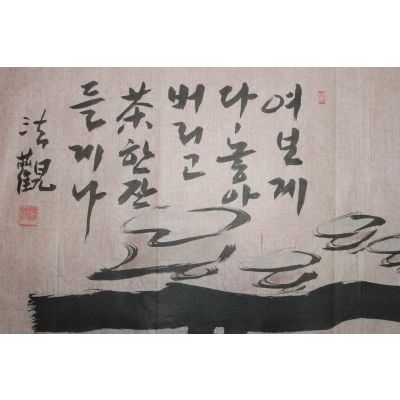 여보게
다 놓아
버리고
茶 한잔
들게나
法觀